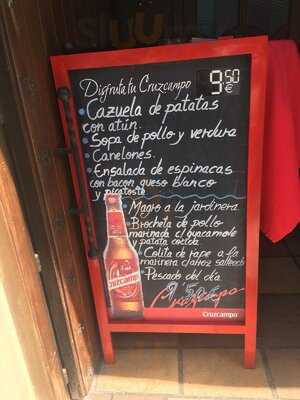 Disfruta tu Cruzcampo
9,50
€
Cazuela de patatas
con atún.
Sopa de pollo y verdura
Canelones.
Ensalada de espinacas
con bacon queso blanco
y picatoste
Magro a la jardinera
Brocheta de pollo
marinada c/guacamole
y patata cocida
Colita de rape a la
marinera c/arroz
Pescado del día
Cruzcampo
Cruzcampo